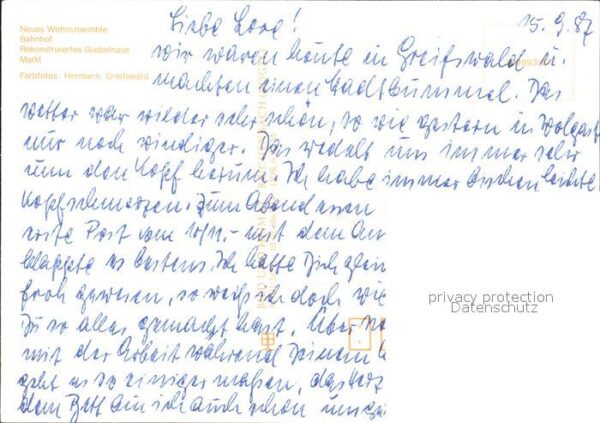 Neues Wohnensemble
Bahnhof
Rekonstruiertes Giebelhaus
Markt
Farbfotos: Hermann, Greifswald
15.9.87
Liebe Lore!
wir waren heute in Greifswald u.
machten einen Stadtbummel. Das
Wetter war wieder sehr schön, so wie gestern in Wolgast
nur noch windiger. Das wedelt uns immer sehr
um den Kopf herum. Ich habe immer bischen leichte
Kopfschmerzen. Zum Abend
erste Post vom mit dem
klappte es bestens. Ich hatte Dich
froh gewesen, so weiß ich doch wie
Du so alles gemacht hast. Über
mit der Arbeit während Deinem
geht es so einigermaßen,
dem Bett bin ich auch schon
privacy protection
Datenschutz